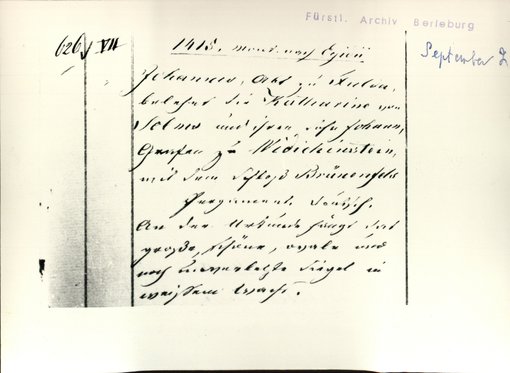 Fürstl. Archiv Berleburg
September 2
626. VII
1415. mont. nach Egidii
Johannes, Abt zu Fulda,
belehnt die Katharine von
Solms und ihren Sohn Johann,
Grafen zu Wittichenstein,
mit dem Schloß Brünenfels
Pergament. Deutsch.
An der Urkunde hängt das
große, schöne, ovale und
noch unverletzte Siegel in
weissem Wachs.